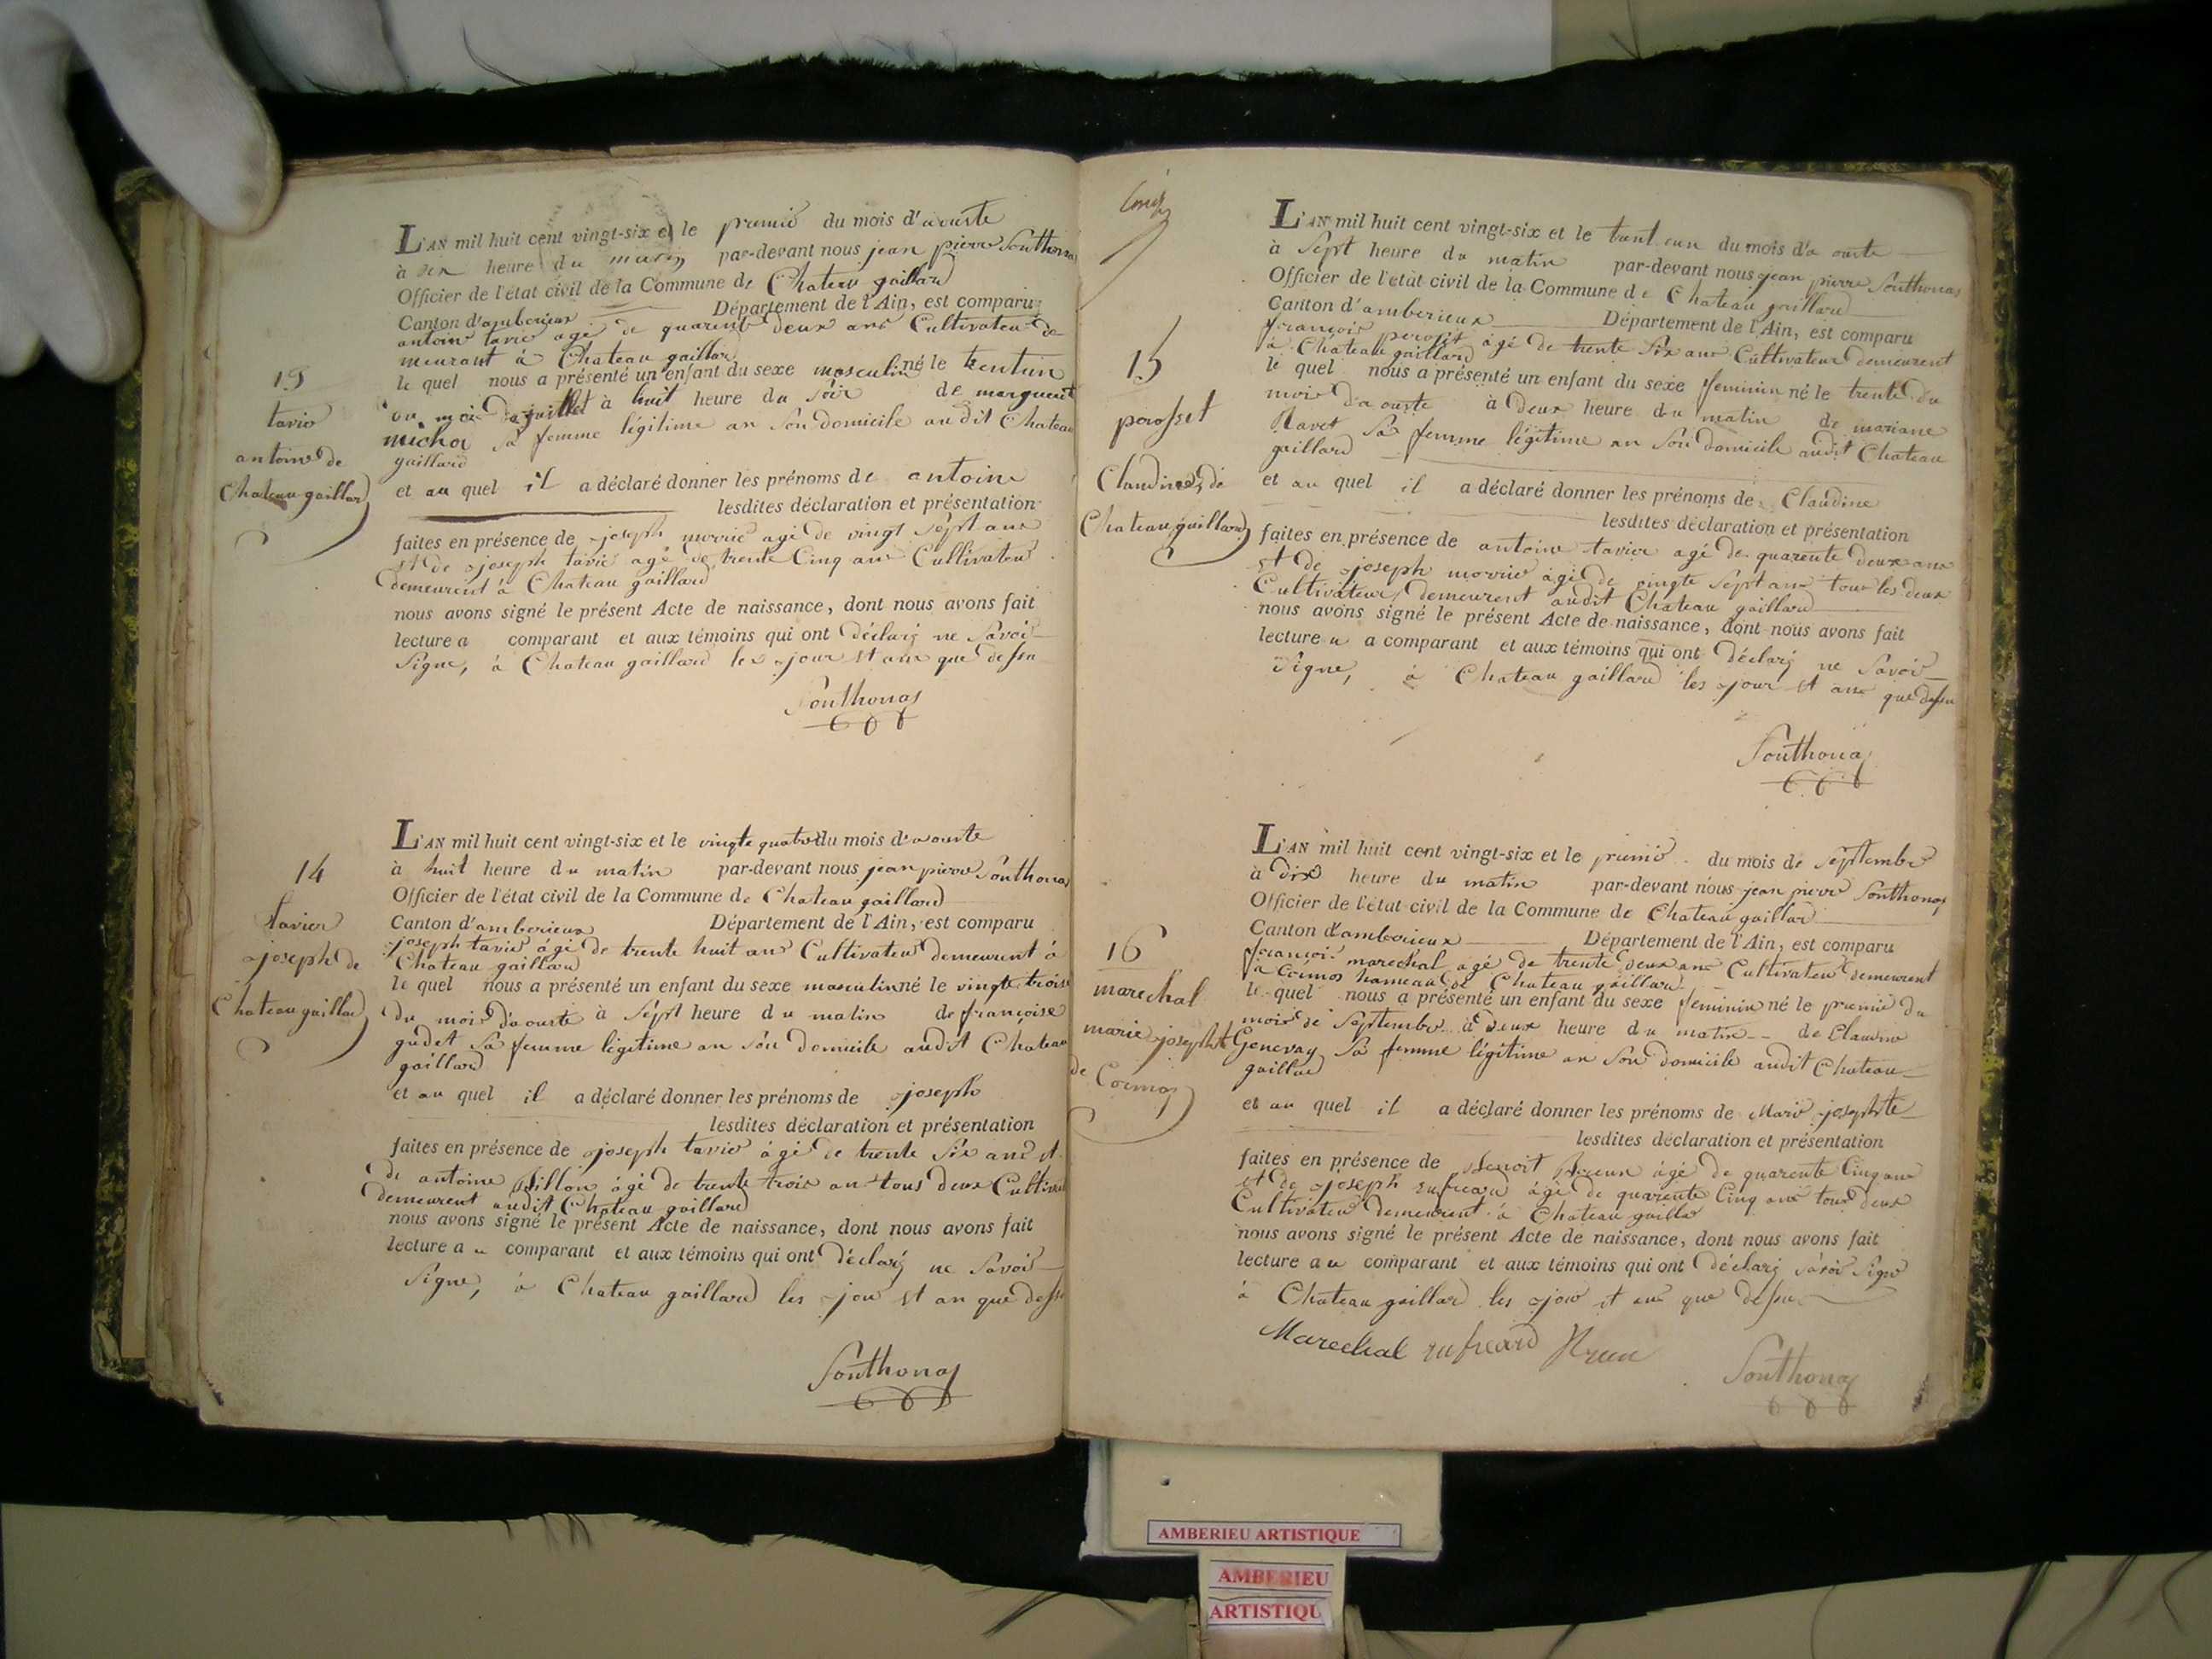 13
tavio
antoine de
Chateau gaillard
L'AN mil huit cent vingt-six et le premié du mois d'aouste
à dix heure du matin par-devant nous jean pierre Southonas
Officier de l'état civil de la Commune de Chateau gaillard
Canton d'amberieux Département de l'Ain, est comparu
antoine tavié agé de quarente deux ans Cultivateur de
meurant à Chateau gaillard
le quel nous a présenté un enfant du sexe masculin né le trentun
du mois de juillet à huit heure du soir de marguerit
micha sa femme légitime an son domicile au dit Chateau
gaillard
et au quel il a déclaré donner les prénoms de antoine
lesdites déclaration et présentation
faites en présence de joseph morrié agé de vingt sept ans
et de joseph tavié agé de trente Cinq ans Cultivateur
demeurent à Chateau gaillard
nous avons signé le présent Acte de naissance, dont nous avons fait
lecture a comparant et aux témoins qui ont déclaré ne savoir
signe, à Chateau gaillard les jour et an que dessu
Southonas
14
tavier
joseph de
Chateau gaillard
L'AN mil huit cent vingt-six et le vingte quatre du mois d'aouste
à huit heure du matin par-devant nous jean pierre Southonas
Officier de l'état civil de la Commune de Chateau gaillard
Canton d'amberieux Département de l'Ain, est comparu
joseph tavié âgé de trente huit ans Cultivateur demeurent à
Chateau gaillard
le quel nous a présenté un enfant du sexe masculin né le vingte trois
du mois d'aouste à sept heure du matin de françoise
gudet sa femme légitime an son domicile audit Chateau
gaillard
et au quel il a déclaré donner les prénoms de joseph
lesdites déclaration et présentation
faites en présence de joseph tavié âgé de trente six ans et
de antoine billon âgé de trente trois an tous deux Cultivat
demeurent audit Chateau gaillard
nous avons signé le présent Acte de naissance, dont nous avons fait
lecture au comparant et aux témoins qui ont déclaré ne savoir
signe, à Chateau gaillard les jour et an que dessu
Southonas
15
perosset
Claudine de
Chateau gaillard
L'AN mil huit cent vingt-six et le trent eun du mois d'a ouste
à sept heure du matin par-devant nous jean pierre Southonas
Officier de l'état civil de la Commune de Chateau gaillard
Canton d'amberieux Département de l'Ain, est comparu
françois peroset âgé de trente six ans Cultivateur demeurent
à Chateau gaillard
le quel nous a présenté un enfant du sexe feminin né le trente du
mois d'a ouste à deux heure du matin de mariane
Ravet sa femme légitime an son domicile audit Chateau
gaillard
et au quel il a déclaré donner les prénoms de Claudine
lesdites déclaration et présentation
faites en présence de antoine tavier agé de quarente deux ans
et de joseph morrié âgé de vingte sept ans tout les deux
Cultivateur demeurent audit Chateau gaillard
nous avons signé le présent Acte de naissance, dont nous avons fait
lecture a comparant et aux témoins qui ont déclaré ne savoir
signe, à Chateau gaillard les jour et ans que dessu
Southonas
16
marechal
marie josephte
de Cormoz
L'AN mil huit cent vingt-six et le premié du mois de septembre
à dix heure du matin par-devant nous jean pierre Southonas
Officier de l'état civil de la Commune de Chateau gaillar
Canton d'amberieux Département de l'Ain, est comparu
françois marechal agé de trente deux ans Cultivateur demeurent
a Cormoz hameau de Chateau gaillard
le quel nous a présenté un enfant du sexe feminin né le premié du
mois de septembre à deux heure du matin de Claudine
Genevay sa femme légitime an son domicile audit Chateau
gaillard
et au quel il a déclaré donner les prénoms de Marie josephte
lesdites déclaration et présentation
faites en présence de benoit âgé de quarente Cinq ans
et de joseph rufieard âgé de quarente Cinq ans tous deux
Cultivateur demeurent à Chateau gaillar
nous avons signé le présent Acte de naissance, dont nous avons fait
lecture au comparant et aux témoins qui ont déclaré savoir signe
à Chateau gaillard les jour et ans que dessu
Marechal rufieard Southonas
AMBERIEU ARTISTIQUE
AMBERIEU
ARTISTIQU